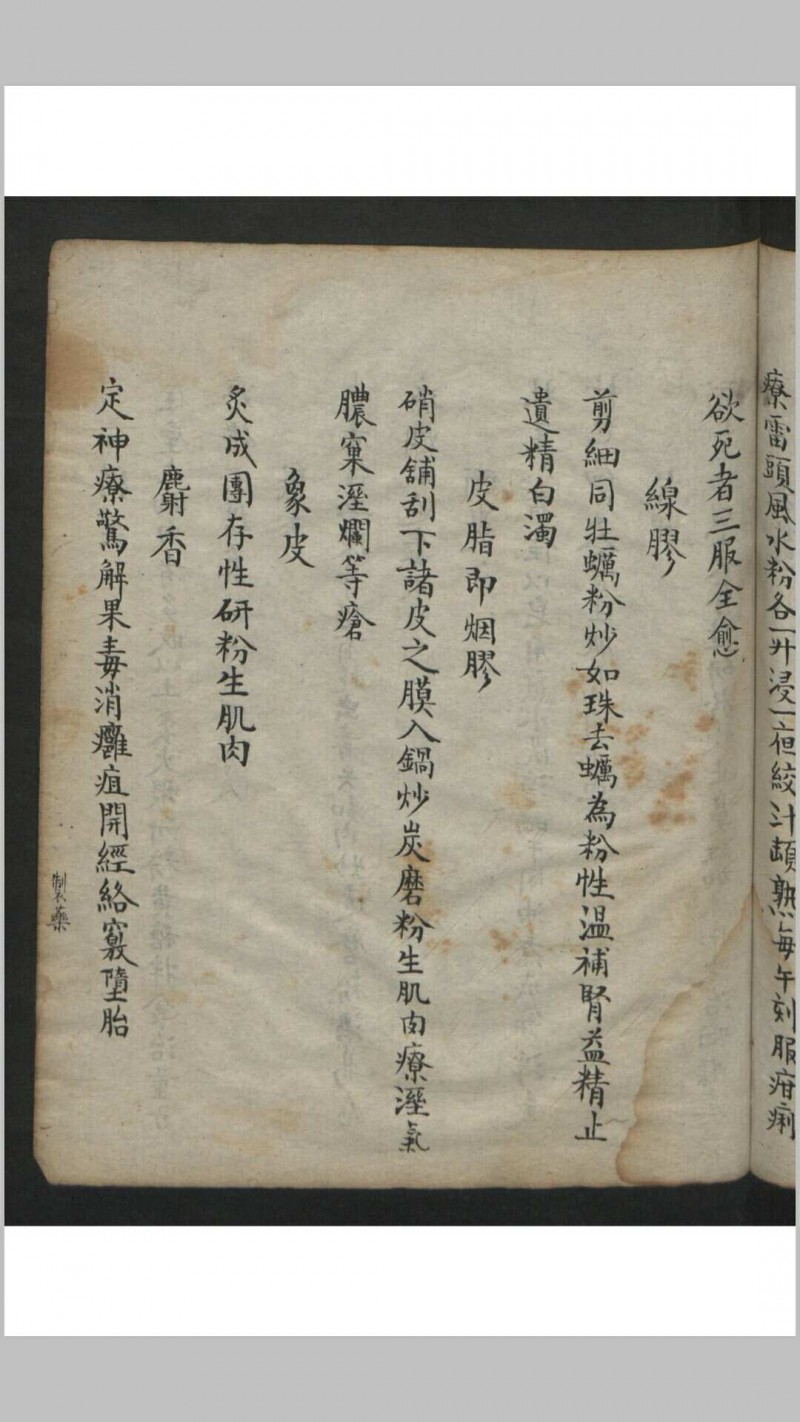 療雷頭風水粉各一升浸一夜絞汁頓熟每午刻服疳痢
欲死者三服全愈
線膠
剪細同牡蠣粉炒如珠去蠣為粉性温補腎益精止
遺精白濁
皮脂即烟膠
硝皮舖刮下諸皮之膜入鍋炒炭磨粉生肌肉療溼氣
膿窠溼爛等瘡
象皮
炙成團存性研粉生肌肉
麝香
定神療驚解果毒消癰疽開經絡竅墮胎
製藥